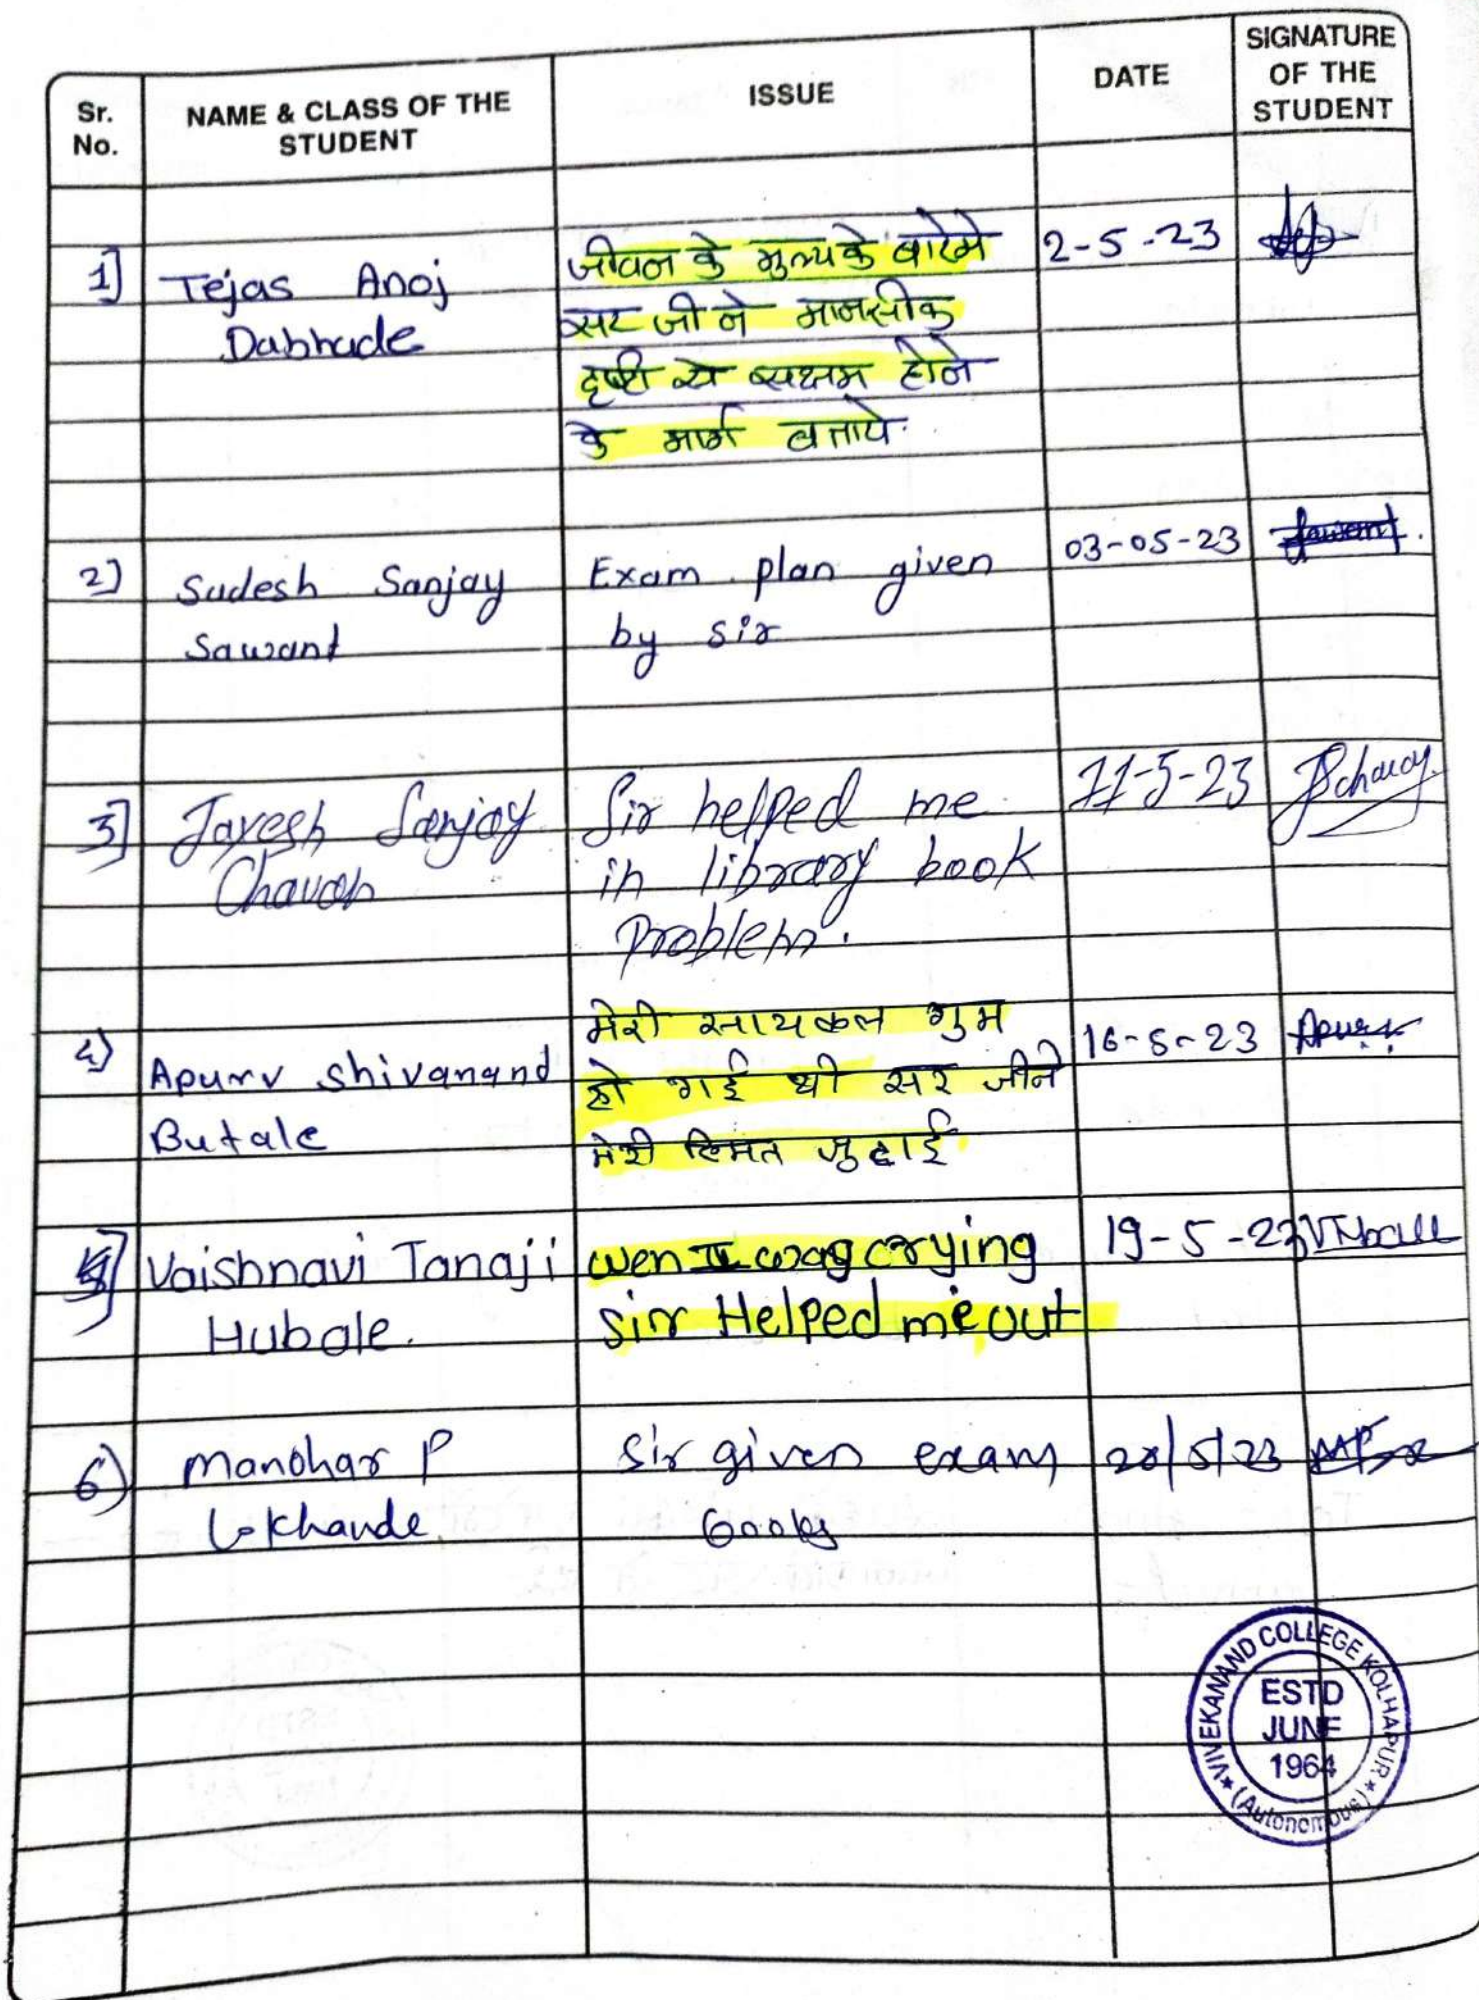 Sr. No.
NAME & CLASS OF THE STUDENT
ISSUE
DATE
SIGNATURE OF THE STUDENT
1] Tejas Anoj Dabhade
जीवन के मुल्य के बारेमे
सर जी ने मानसीक
दृष्टी से सक्षम होने
के मार्ग बताये
2-5-23
2) Sudesh Sanjay
Sawant
Exam plan given
by sir
03-05-23
Sawant.
3] Jayesh Sanjay
Chavan
Sir helped me
in library book
problem.
11-5-23
4) Apurv Shivanand
Butale
मेरी सायकल गुम
हो गई थी सर जीने
मेरी हिमत जुटाई
16-5-23
5] Vaishnavi Tanaji
Hubale.
wen I wag crying
sir Helped me out
19-5-23
6) Manohar P
Lokhande
Sir given exam
books
20/5/23
VIVEKANAND COLLEGE KOLHAPUR
(Autonomous)
ESTD
JUNE
1964